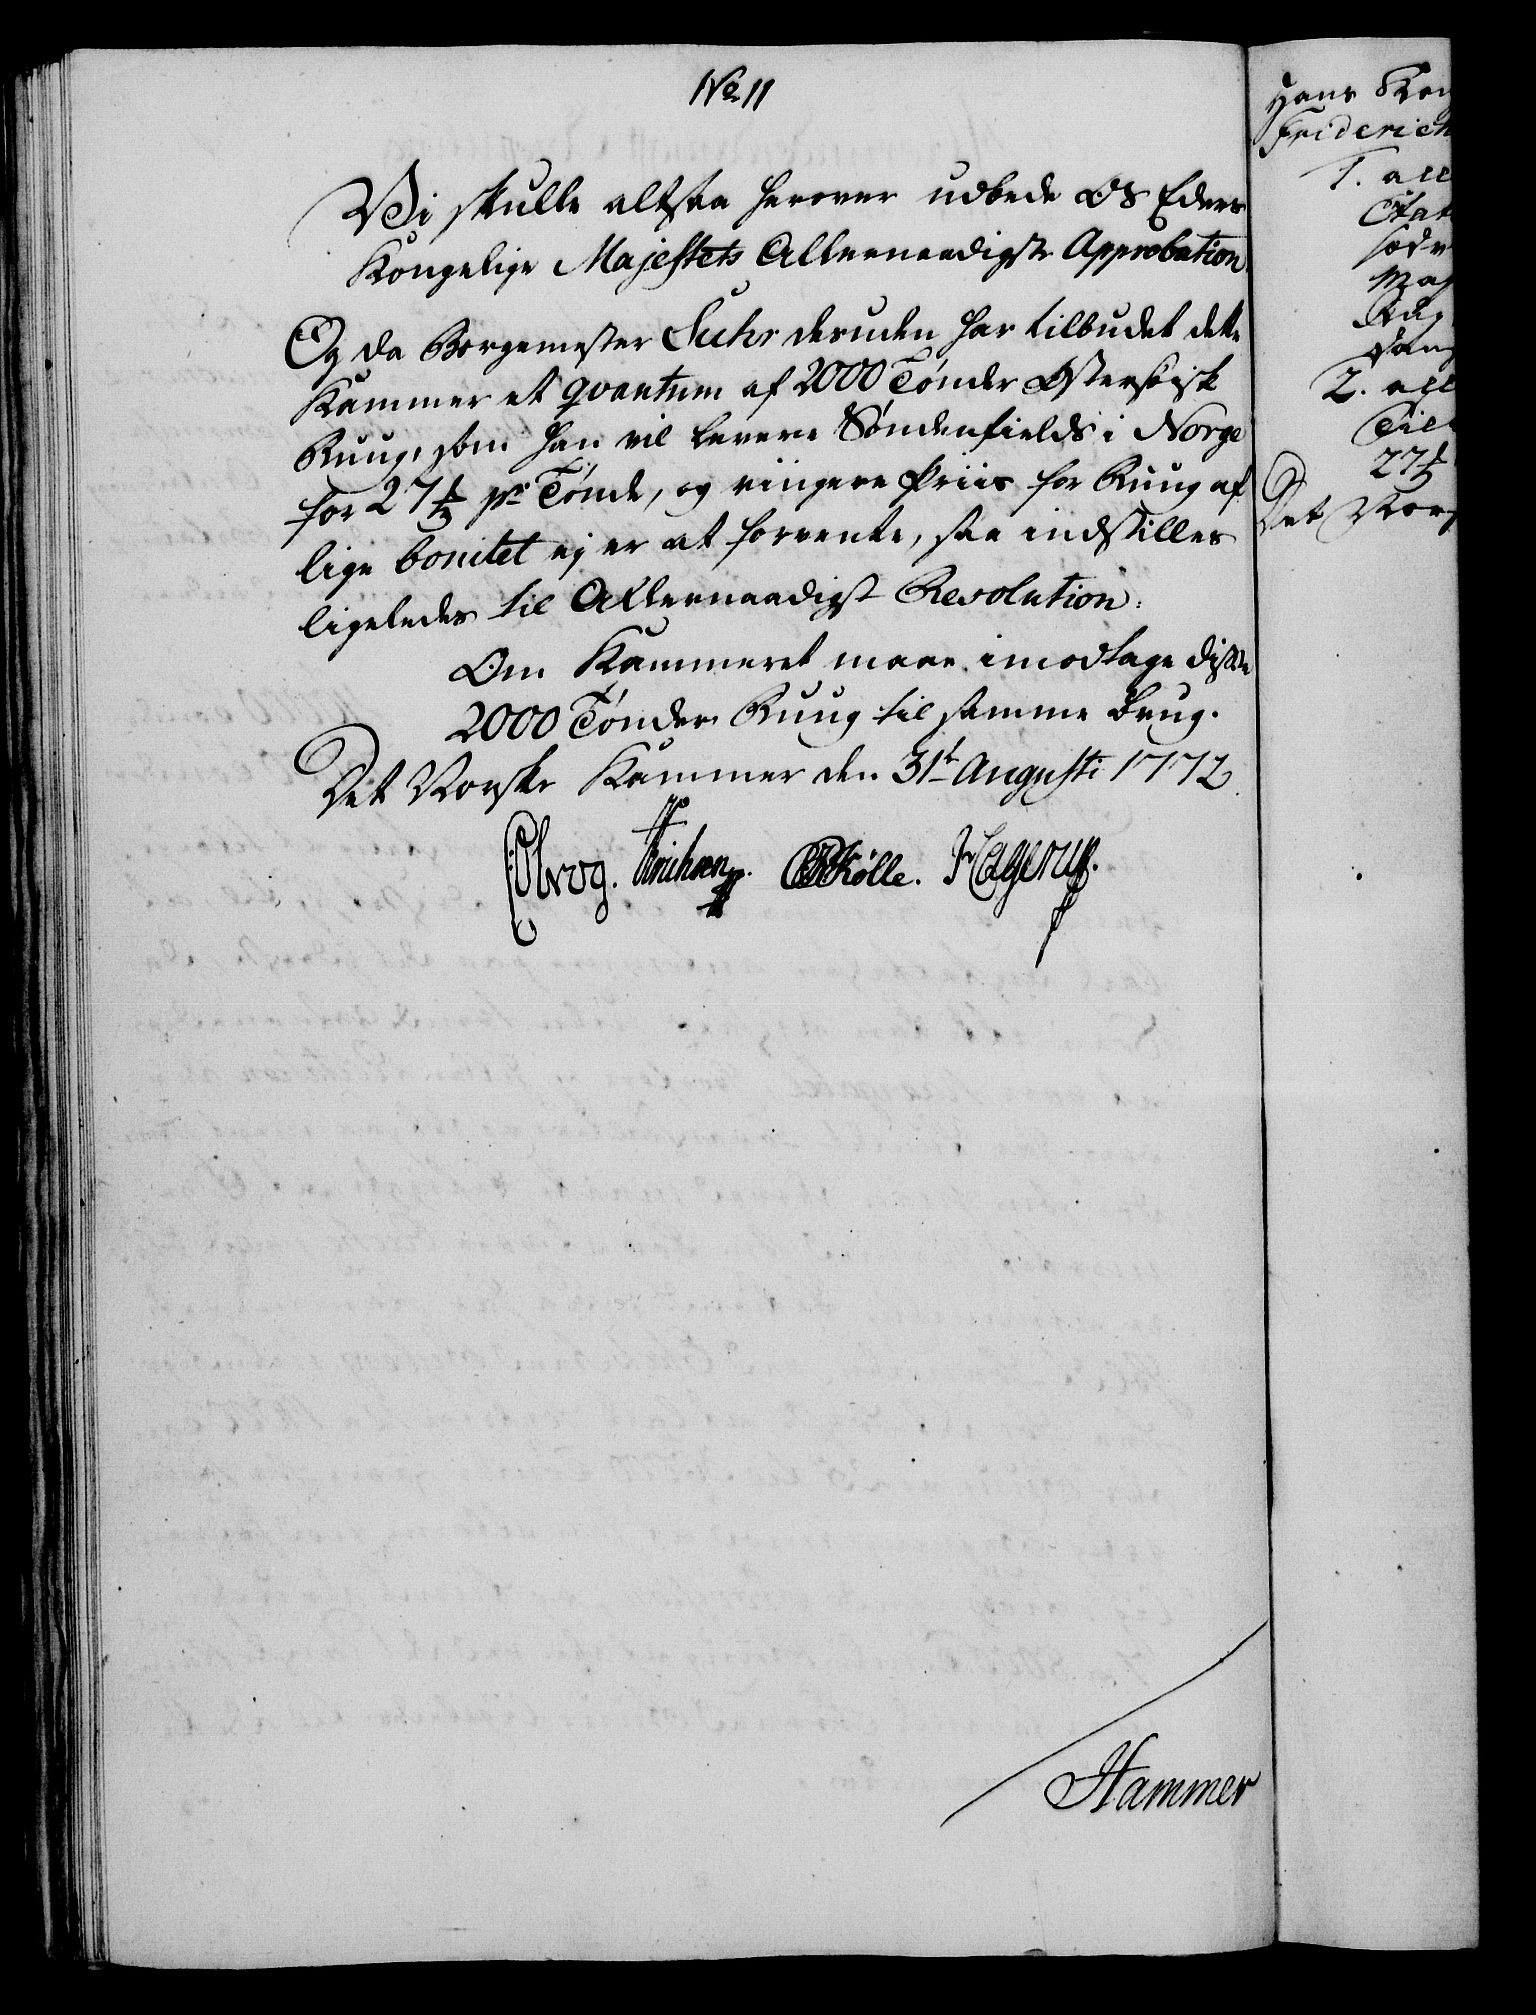 No 11
Vi skulle altsaa herover udbede os Eders
Kongelige Majestets Allernaadigste Approbation.
Og da Borgemester Suhr desuden har tilbudet dette
Kammer et qvantum af 2000 Tønder Østersøisk
Ruug, som han vil levere Søndenfields i Norge
for 27 ½ pr Tønde, og ringere Priis for Ruug af
lige bonitet ej er at forvente, saa indstilles
ligeledes til Allernaadigst Resolution:
Om Kammeret maae imodtage disse
2000 Tønder Ruug til samme Brug.
Det Norske Kammer den 31t Augusti 1772
Holle. Hagerup.
Hammer
Hans Kon
Friderich
1. all
2. all
27 ½
Det Nors